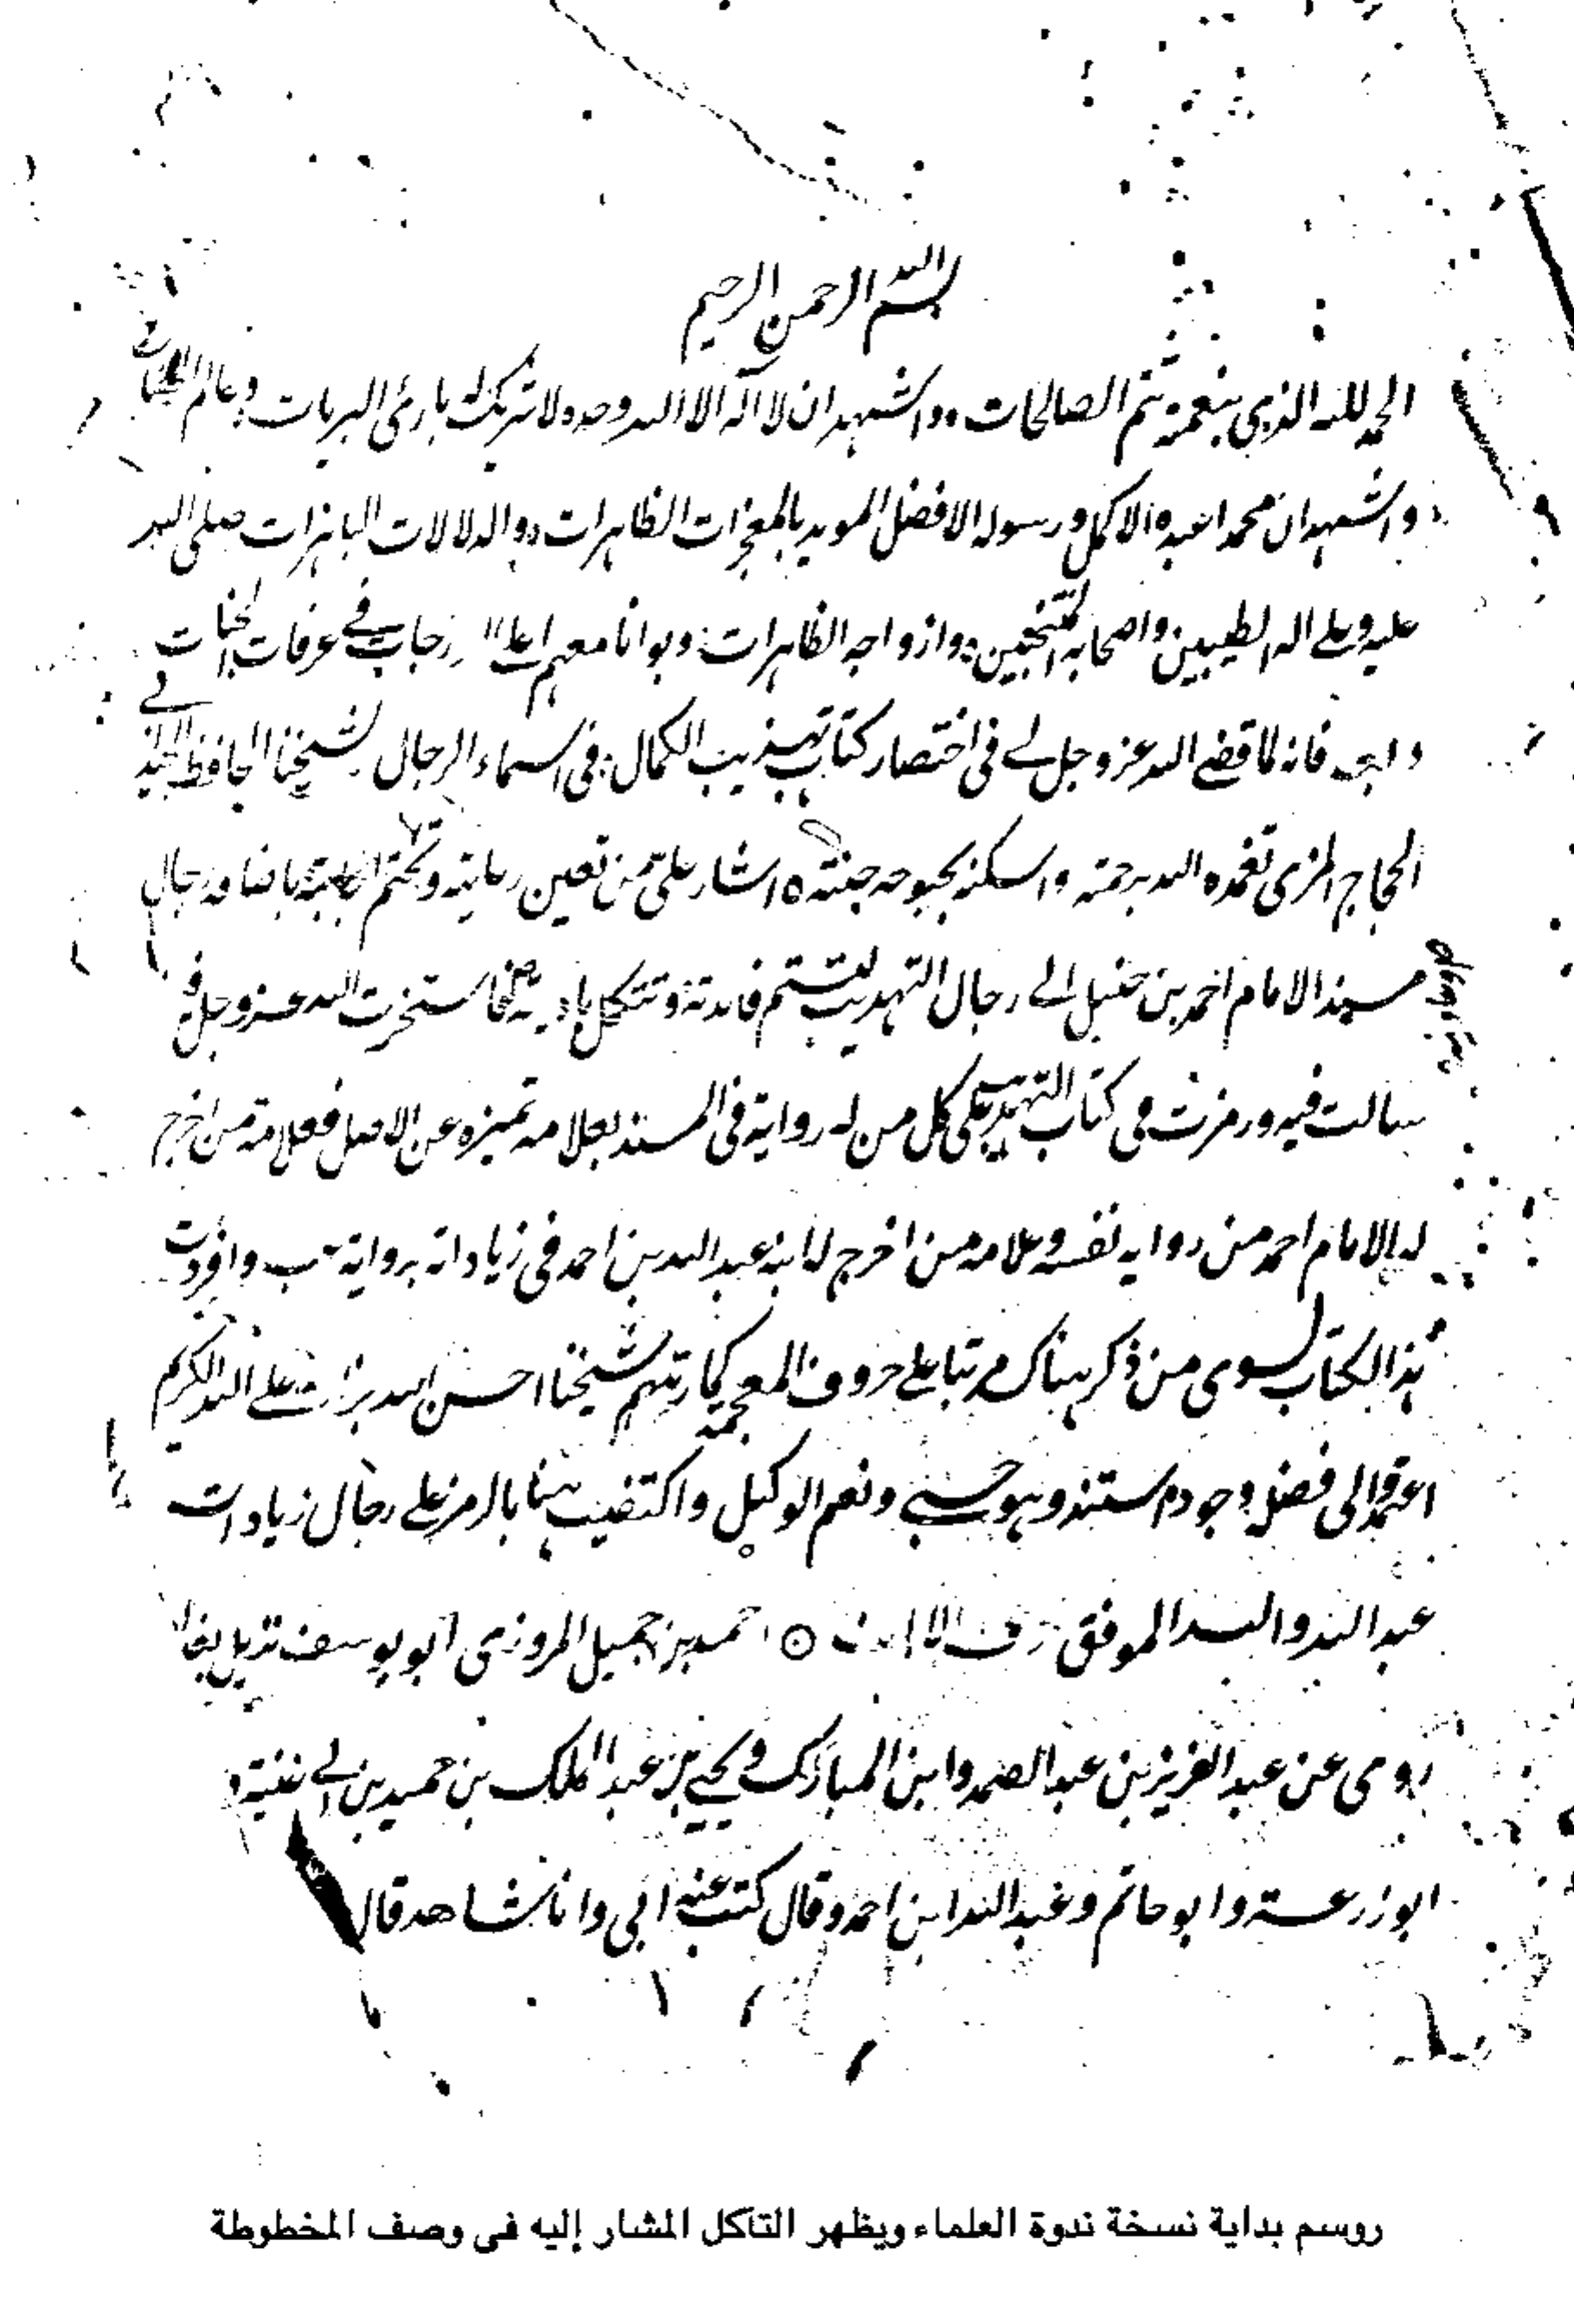 بسم الله الرحمن الرحيم
الحمد لله الذي بنعمته تتم الصالحات واشهد ان لا اله الا الله وحده لا شريك له بارئ البريات وعالم
واشهد ان محمدا عبده الاكمل ورسوله الافضل المويد بالمعجزات الظاهرات والدلالات الباهرات صلى الله
عليه وعلى اله الطيبين واصحابه المنتجبين وازواجه الطاهرات وبوانا معهم اعلا في غرفات الجنات
وبعد فانه لما قضى الله عز وجل لي في اختصار كتاب تهذيب الكمال في اسماء الرجال لشيخنا الحافظ
الحجاج المزي تغمده الله برحمته واسكنه بحبوحة جنته اشار علي من تعين رعايته وتحتم اجابته باضافة رجال
مسند الامام احمد بن حنبل الى رجال التهذيب لتتم فائدته وتتكمل فاستخرت الله عز وجل
سالت فيه ورمزت في كتاب التهذيب على كل من له رواية في المسند بعلامة تميزه عن الاصل فعلامة من اخرج
له الامام احمد من رواية نفسه وعلامة من اخرج له ابنه عبد الله بن احمد في زياداته برواية عب وافردت
هذا الكتاب لسوى من ذكر هناك مرتبا على حروف المعجم كما رتبهم شيخنا احسن الله على الله الكريم
اعتمد والى فضله وجوده استند وهو حسبي ونعم الوكيل واكتفيت هنا بالرمز على رجال زيادات
عبد الله والله الموفق احمد بن جميل المروزي ابو يوسف نزيل بغداد
روى عن عبد العزيز بن عبد الصمد وابن المبارك ويحيى بن عبد الملك بن حميد بن ابي غنية و
ابو زرعة وابو حاتم وعبد الله ابن احمد وقال كتب عنه ابي وانا شاهد قال
روسم بداية نسخة ندوة العلماء ويظهر التآكل المشار إليه في وصف المخطوطة